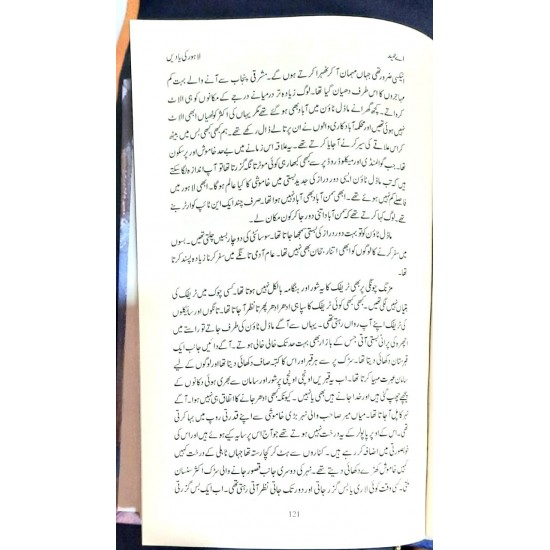 اے حمید لاہور کی یادیں
انیکسی ضرور تھی جہاں مہمان آ کر ٹھہرا کرتے ہوں گے۔ مشرقی پنجاب سے آنے والے بہت کم
مہاجروں کا اس طرف دھیان گیا تھا۔ لوگ زیادہ تر درمیانے درجے کے مکانوں کو ہی الاٹ
کرواتے تھے۔ کچھ گھرانے ماڈل ٹاؤن میں آباد بھی ہو گئے تھے مگر یہاں کی اکثر کوٹھیاں ابھی الاٹ
نہیں ہوئی تھیں اور محکمہ آبادکاری والوں نے ان پر تالے ڈال رکھے تھے۔ ہم بھی کبھی کبھی بس میں بیٹھ
کر اس علاقے کی سیر کرنے آ جایا کرتے تھے۔ یہ علاقہ اس زمانے میں بے حد خاموش اور پرسکون
تھا۔ جب گوالمنڈی اور میکلوڈ روڈ پر سے بھی کبھار ہی کوئی موٹر یا تانگہ گزرتا تھا تو آپ اندازہ لگا سکتے
ہیں کہ تب ماڈل ٹاؤن ایسی دور دراز کی جدید بستی میں خاموشی کا کیا عالم ہو گا۔ ابھی لاہور میں
فاصلے کم نہیں ہوئے تھے۔ ابھی سمن آباد بھی آباد نہیں ہوا تھا۔ صرف چند ایک این ٹائپ کوارٹر بنے
تھے۔ لوگ کہا کرتے تھے کہ سمن آباد اتنی دور جا کر کون مکان لے۔
ماڈل ٹاؤن کو تو بہت دور دراز کی بستی سمجھا جاتا تھا۔ سوسائٹی کی دو چار بسیں چلتی تھیں۔ بسوں
میں سفر کرنے کا لوگوں کو ابھی اتنا رجحان بھی نہیں تھا۔ عام آدمی تانگے میں سفر کرنا زیادہ پسند کرتا
تھا۔
مزنگ چونگی پر بھی ٹریفک کا یہ شور اور ہنگامہ بالکل نہیں ہوتا تھا۔ کسی چوک میں ٹریفک کی
بتیاں نہیں لگی تھیں۔ کبھی کبھی کوئی ٹریفک کا سپاہی ادھر ادھر پھرتا نظر آ جاتا تھا۔ تانگوں اور سائیکلوں
کی ٹریفک اپنے آپ رواں رہتی تھی۔ یہاں سے آگے ماڈل ٹاؤن کی طرف جاتے تو راستے میں
اچھرہ کی پرانی بستی آتی جس کے بازار بھی بہت حد تک خالی خالی ہوتے تھے۔ آگے دائیں جانب ایک
قبرستان دکھائی دیتا تھا۔ سڑک پر سے ہر قبر اور اس کا کتبہ صاف دکھائی دیتا تھا اور لوگوں کے لیے
سامان عبرت مہیا کرتا تھا۔ اب یہ قبریں اونچی اونچی پرشور اور سامان سے بھری ہوئی دکانوں کے
پیچھے چھپ گئی ہیں اور خدا جانے ہیں بھی یا نہیں۔ کیونکہ کبھی ادھر جانے کا اتفاق ہی نہیں ہوا۔ آگے
نہر کا پل آ جاتا تھا۔ میاں میر صاحب والی نہر بڑی خاموشی سے اپنے قدرتی روپ میں بہا کرتی
تھی۔ اس کے اوپر پاپولر کے یہ درخت نہیں ہوتے تھے جو آج اس پر سایہ کیے ہوئے ہیں اور اس کی
خوبصورتی میں اضافہ کر رہے ہیں۔ کناروں سے ہٹ کر کچا رستہ تھا جہاں ٹاہلی کے درخت کہیں
کہیں خاموش کھڑے دکھائی دیتے تھے۔ نہر کی دوسری جانب قصور جانے والی سڑک اکثر سنسان
ہوتی۔ کسی وقت کوئی لاری یا بس گزر جاتی اور دور تک جاتی نظر آتی رہتی تھی۔ اب ایک بس گزرتی
121